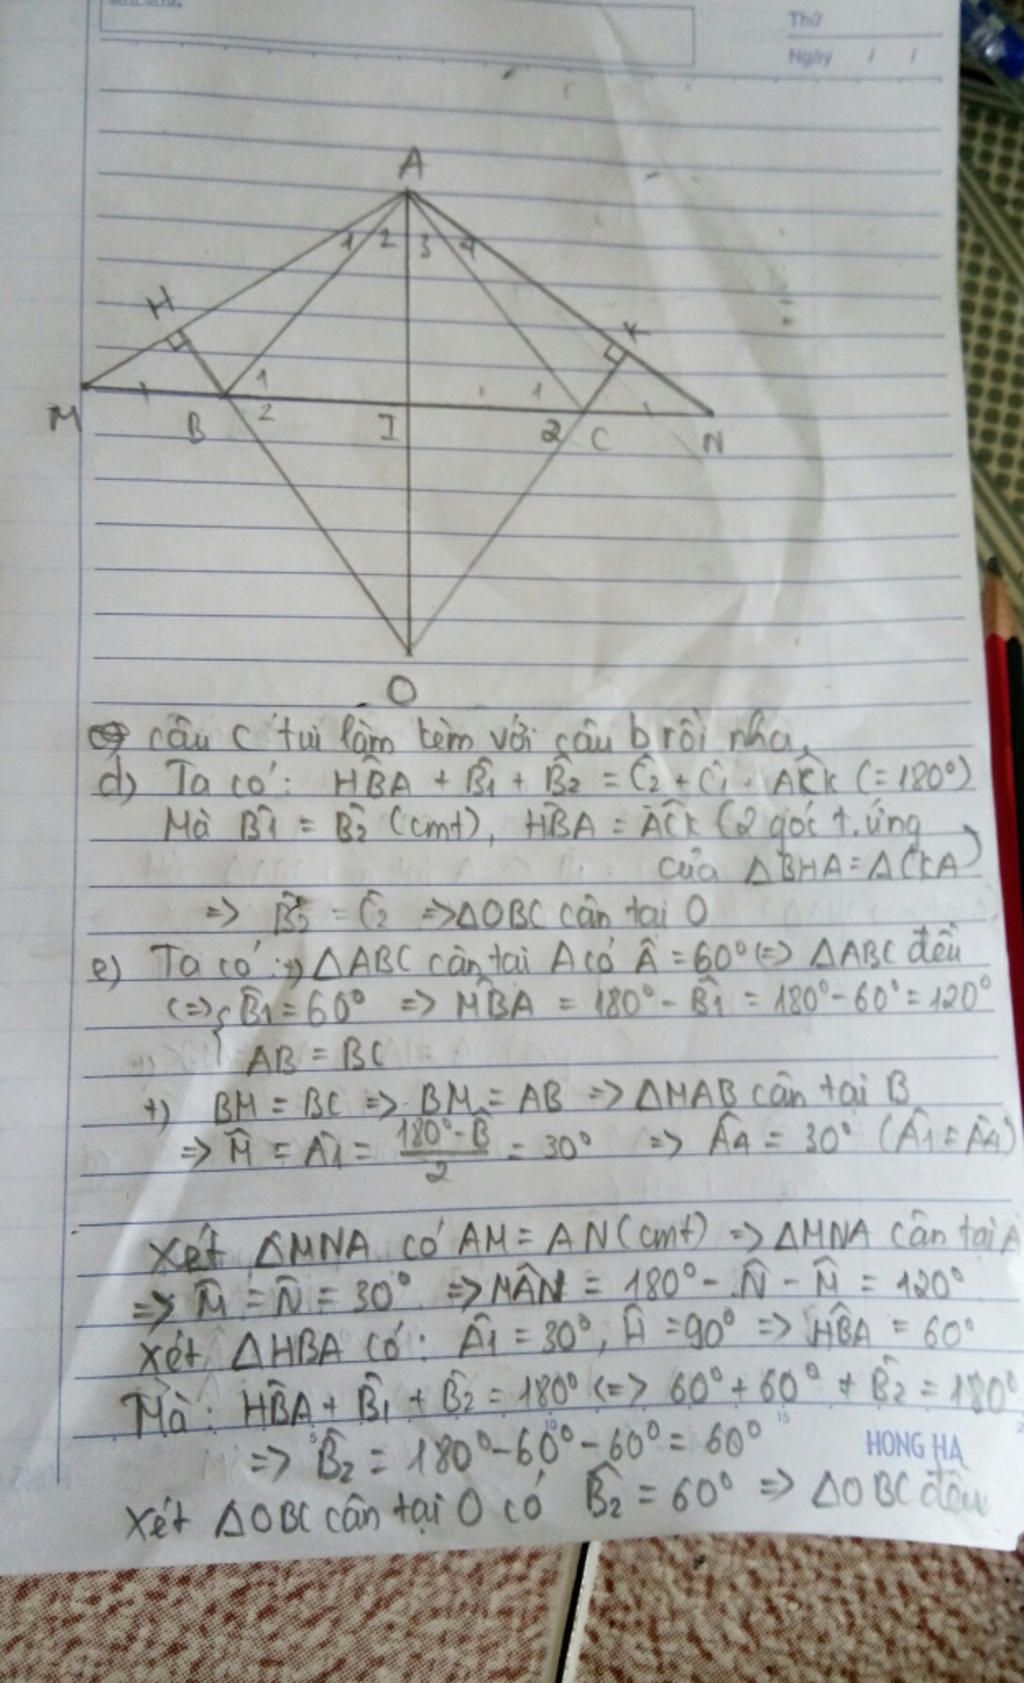 Thứ
Ngày / /
A
1 2 3 4
H
K
M
B
1
2
I
1
2
C
N
O
câu c tui làm kèm với câu b rồi nha.
d) Ta có: HB̂A + B̂1 + B̂2 = Ĉ2 + Ĉ1 . AĈK (=180°)
Mà B̂1 = B̂2 (cmt), HB̂A = AĈK (2 góc t.ứng
của ΔBHA = ΔCKA)
=> B̂2 = Ĉ2 => ΔOBC cân tại O
e) Ta có: +) ΔABC cân tại A có Â = 60° (=> ΔABC đều
(=> { B̂1 = 60° => MB̂A = 180° - B̂1 = 180° - 60° = 120°
AB = BC
+) BM = BC => BM = AB => ΔMAB cân tại B
=> M̂ = Â1 = (180° - B̂)/2 = 30° => Â4 = 30° (Â1 = Â4)
Xét ΔMNA có AM = AN (cmt) => ΔMNA cân tại A
=> M̂ = N̂ = 30° => MÂN = 180° - N̂ - M̂ = 120°
Xét ΔHBA có: Â1 = 30°, Ĥ = 90° => HB̂A = 60°
Mà: HB̂A + B̂1 + B̂2 = 180° <=> 60° + 60° + B̂2 = 180°
=> B̂2 = 180° - 60° - 60° = 60°
HONG HA
Xét ΔOBC cân tại O có B̂2 = 60° => ΔOBC đều